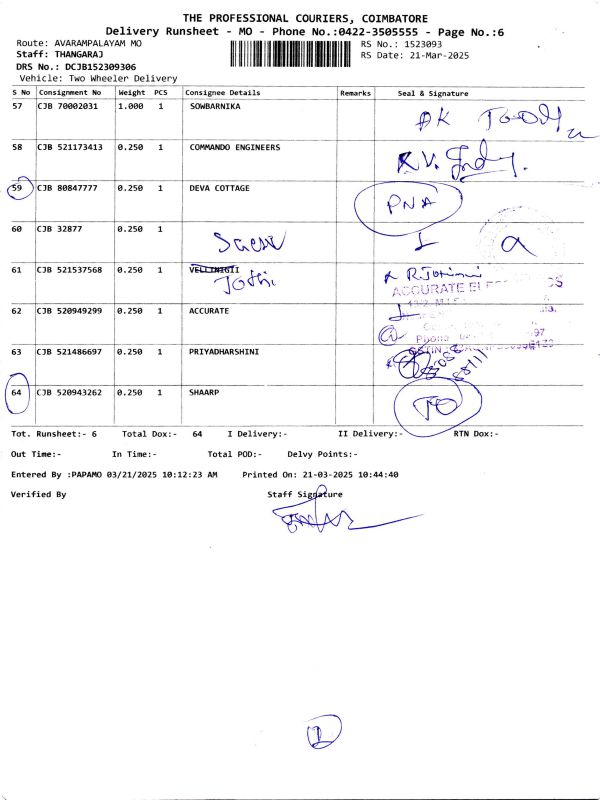 THE PROFESSIONAL COURIERS, COIMBATORE
Delivery Runsheet - MO - Phone No.:0422-3505555 - Page No.:6
Route: AVARAMPALAYAM MO RS No.: 1523093
Staff: THANGARAJ RS Date: 21-Mar-2025
DRS No.: DCJB152309306
Vehicle: Two Wheeler Delivery
S No Consignment No Weight PCS Consignee Details Remarks Seal & Signature
57 CJB 70002031 1.000 1 SOWBARNIKA
58 CJB 521173413 0.250 1 COMMANDO ENGINEERS
59 CJB 80847777 0.250 1 DEVA COTTAGE PNA
60 CJB 32877 0.250 1
61 CJB 521537568 0.250 1 VELLINIGII
Jothi
62 CJB 520949299 0.250 1 ACCURATE
63 CJB 521486697 0.250 1 PRIYADHARSHINI
64 CJB 520943262 0.250 1 SHAARP TO
Tot. Runsheet:- 6 Total Dox:- 64 I Delivery:- II Delivery:- RTN Dox:-
Out Time:- In Time:- Total POD:- Delvy Points:-
Entered By :PAPAMO 03/21/2025 10:12:23 AM Printed On: 21-03-2025 10:44:40
Verified By Staff Signature
1